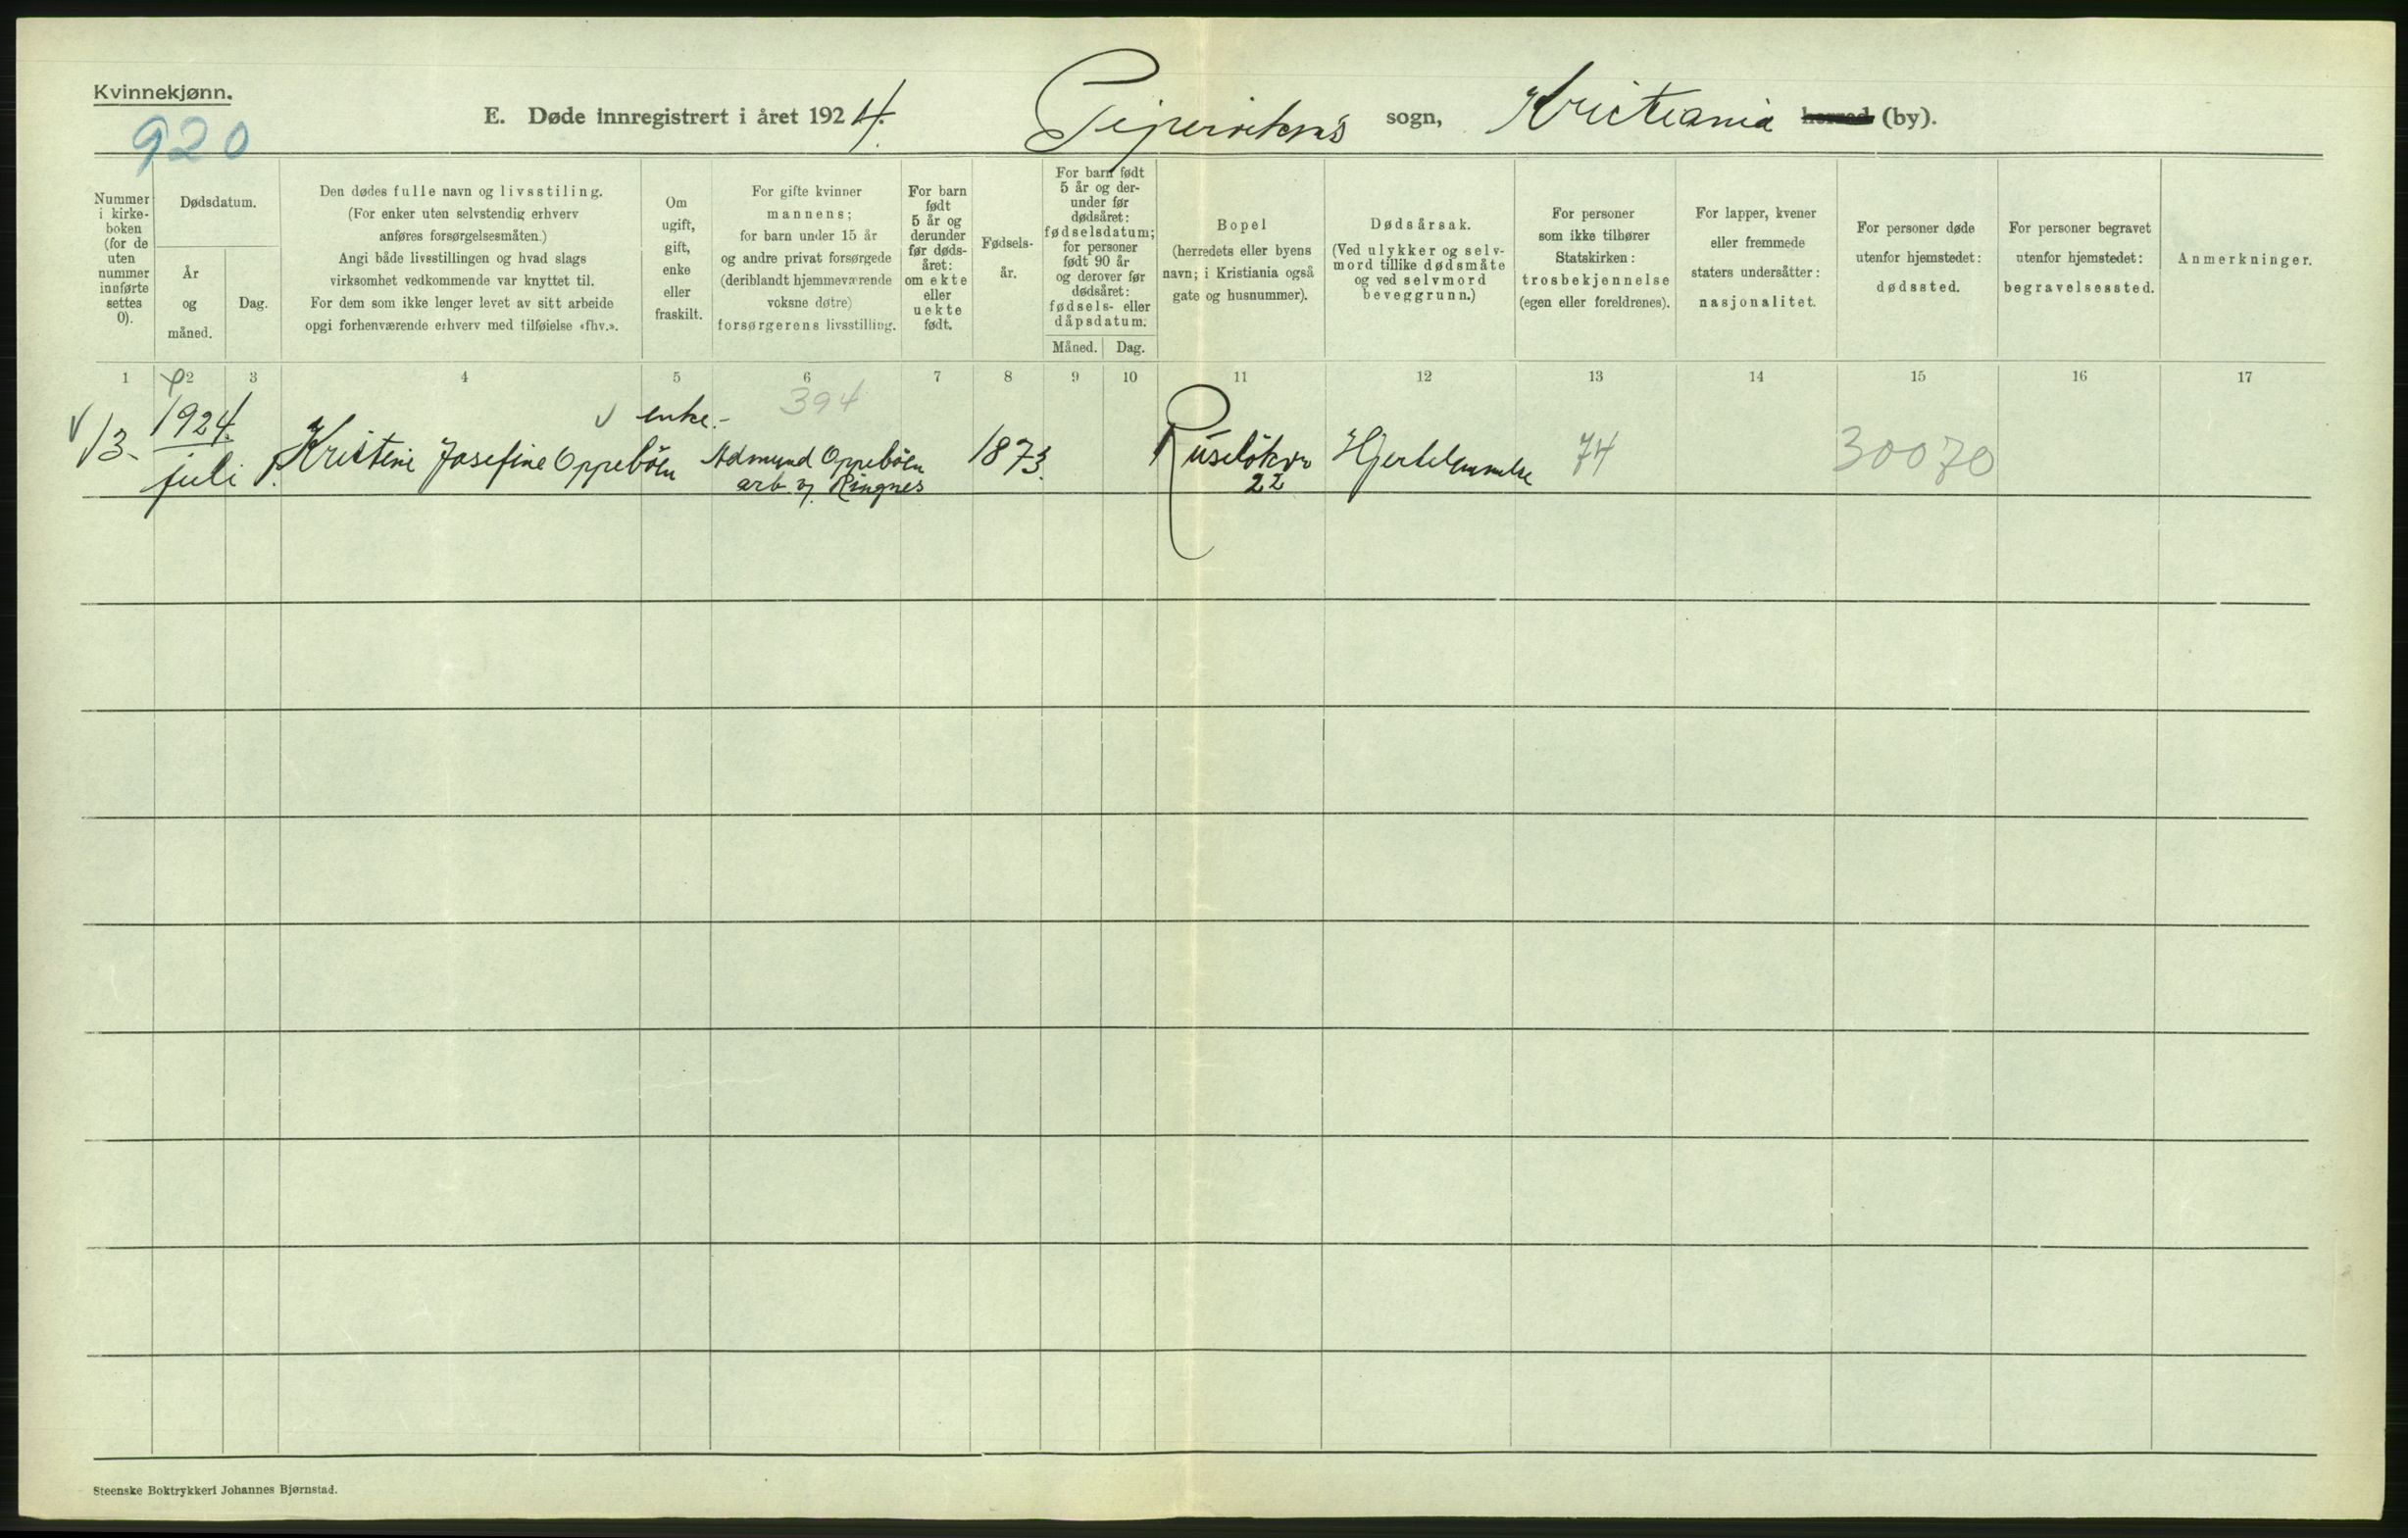 Kvinnekjønn.
920
E. Døde innregistrert i året 1924. Pipervikens sogn, Kristiania herred (by).
Nummer
i kirke-
boken
(for de
uten
nummer
innførte
settes
0).
Dødsdatum.
År
og
måned.
Dag.
Den dødes fulle navn og livsstiling.
(For enker uten selvstendig erhverv
anføres forsørgelsesmåten.)
Angi både livsstillingen og hvad slags
virksomhet vedkommende var knyttet til.
For dem som ikke lenger levet av sitt arbeide
opgi forhenværende erhverv med tilføielse «fhv.».
Om
ugift,
gift,
enke
eller
fraskilt.
For gifte kvinner
mannens;
for barn under 15 år
og andre privat forsørgede
(deriblandt hjemmeværende
voksne døtre)
forsørgerens livsstilling.
For barn
født
5 år og
derunder
før døds-
året:
om ekte
eller
uekte
født.
Fødsels-
år.
For barn født
5 år og der-
under før
dødsåret:
fødselsdatum;
for personer
født 90 år
og derover før
dødsåret:
fødsels- eller
dåpsdatum.
Måned. Dag.
Bopel
(herredets eller byens
navn; i Kristiania også
gate og husnummer).
Dødsårsak.
(Ved ulykker og selv-
mord tillike dødsmåte
og ved selvmord
beveggrunn.)
For personer
som ikke tilhører
Statskirken:
trosbekjennelse
(egen eller foreldrenes).
For lapper, kvener
eller fremmede
staters undersåtter:
nasjonalitet.
For personer døde
utenfor hjemstedet:
dødssted.
For personer begravet
utenfor hjemstedet:
begravelsessted.
Anmerkninger.
1 2 3 4 5 6 7 8 9 10 11 12 13 14 15 16 17
13. 1924. juli 1. Kristine Josefine Oppeböen enke.- 394
Admund Oppeböen
arb. v. Ringnes
1873.
Ruselökvn
22
74
30070
Steenske Boktrykkeri Johannes Bjørnstad.